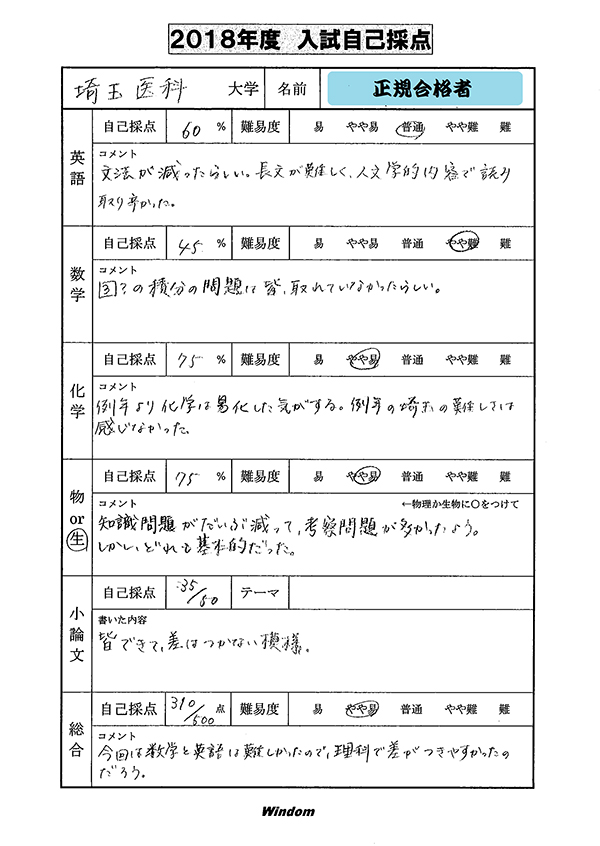 2018年度 入試自己採点
埼玉医科 大学 名前 正規合格者
英語
自己採点 60 % 難易度 易 やや易 普通 やや難 難
コメント
文法が減ったらしい。長文が難しく、人文学的内容で読み
取り辛かった。
数学
自己採点 45 % 難易度 易 やや易 普通 やや難 難
コメント
の積分の問題は皆、取れていなかったらしい。
化学
自己採点 75 % 難易度 易 やや易 普通 やや難 難
コメント
例年より化学は易化した気がする。例年の埼玉の難しさは
感じなかった
物or生
自己採点 75 % 難易度 易 やや易 普通 やや難 難
コメント ←物理か生物に○をつけて
知識問題がだいぶ減って、考察問題が多かったよう。
しかし、どれも基本的だった。
小論文
自己採点 35/50 テーマ
書いた内容
皆できて、差はつかない模様。
総合
自己採点 310/500 点 難易度 易 やや易 普通 やや難 難
コメント
今回は数学と英語は難しかったので、理科で差がつきやすかったの
だろう。
Windom